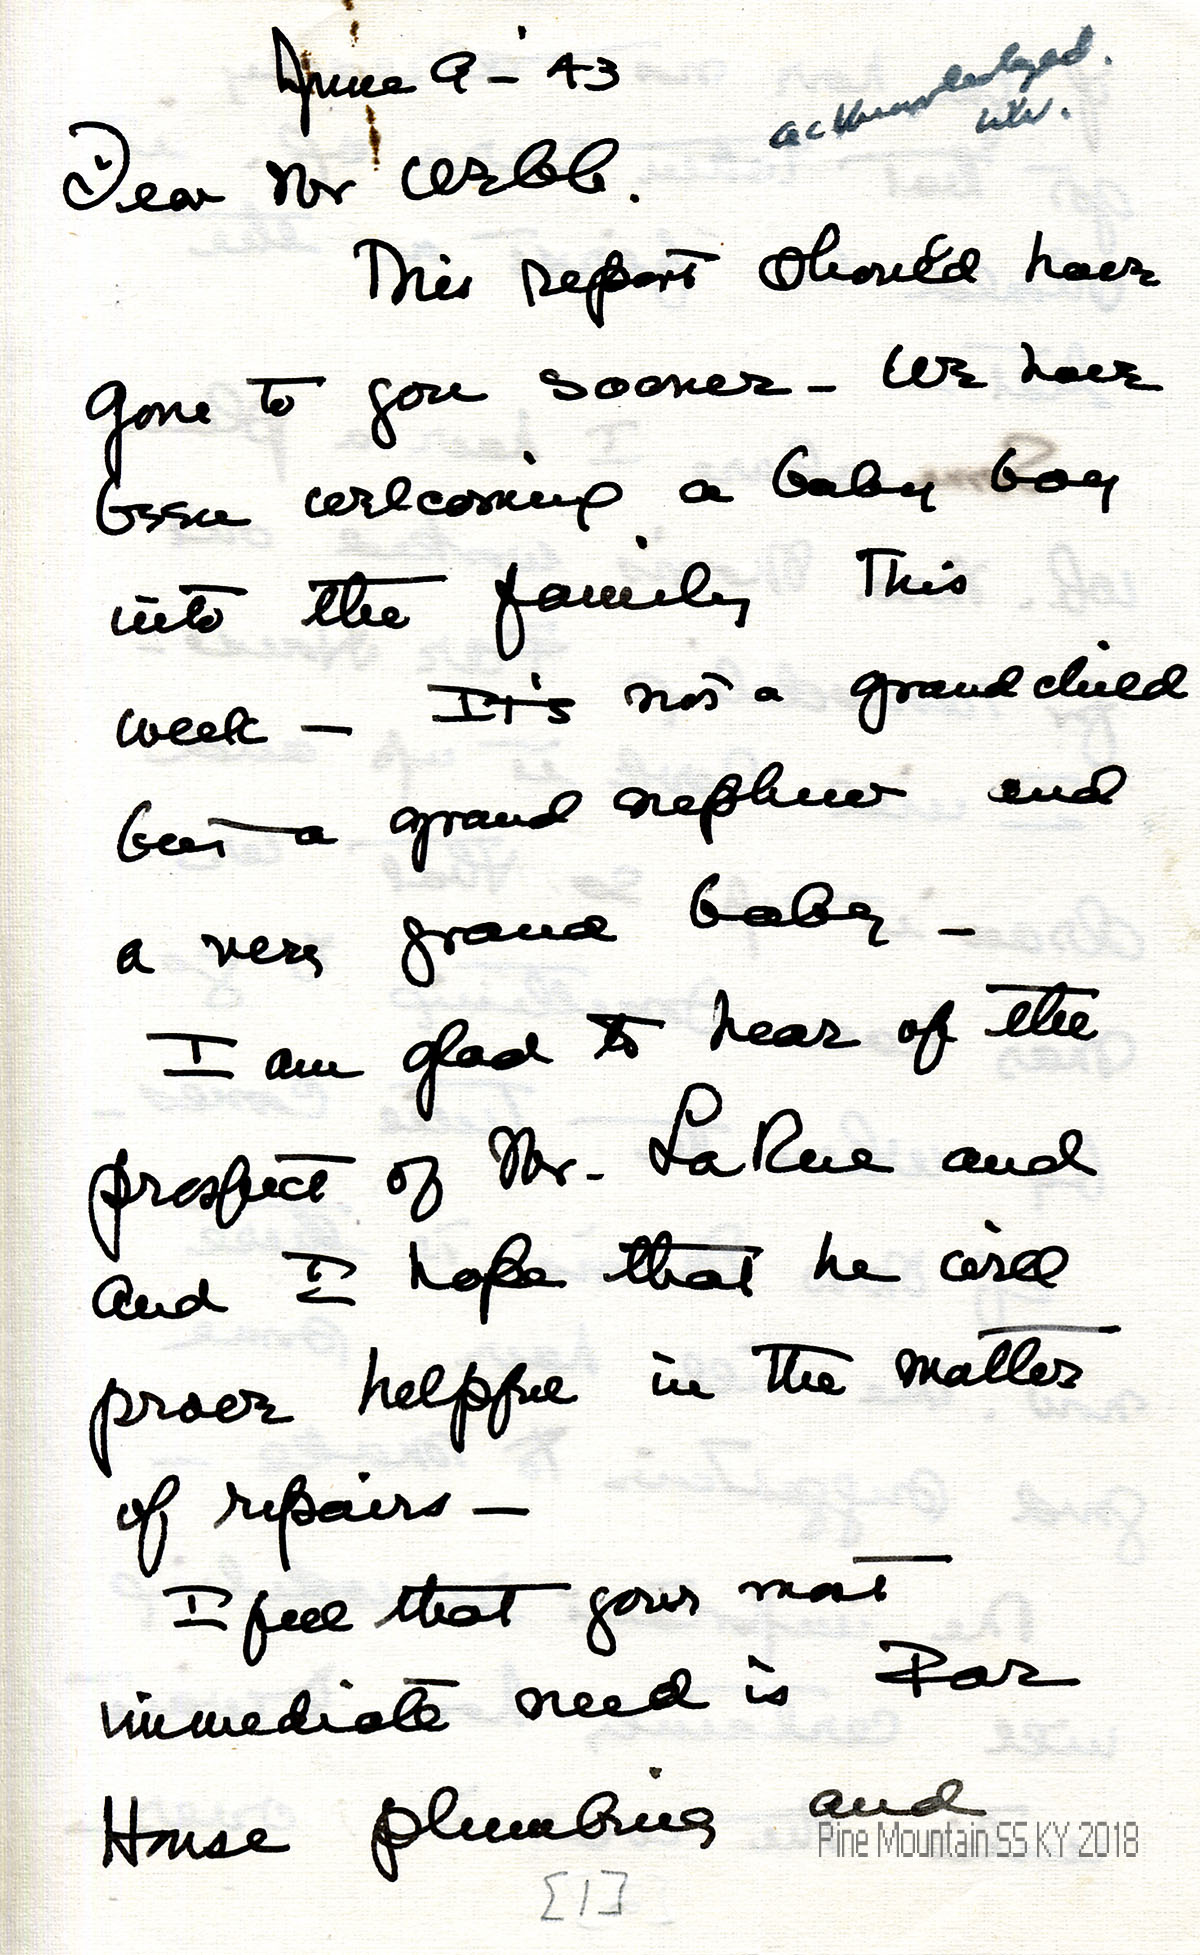 June 9 - '43
acknowledged.
WW.
Dear Mr Webb.
This report should have
gone to you sooner - We have
been welcoming a baby boy
into the family this
week - It's not a grandchild
but a grand nephew and
a very grand baby -
I am glad to hear of the
prospect of Mr. LaRue and
and I hope that he will
prove helpful in the matter
of repairs -
I feel that your most
immediate need is Far
House plumbing and
Pine Mountain SS KY 2018
[1]